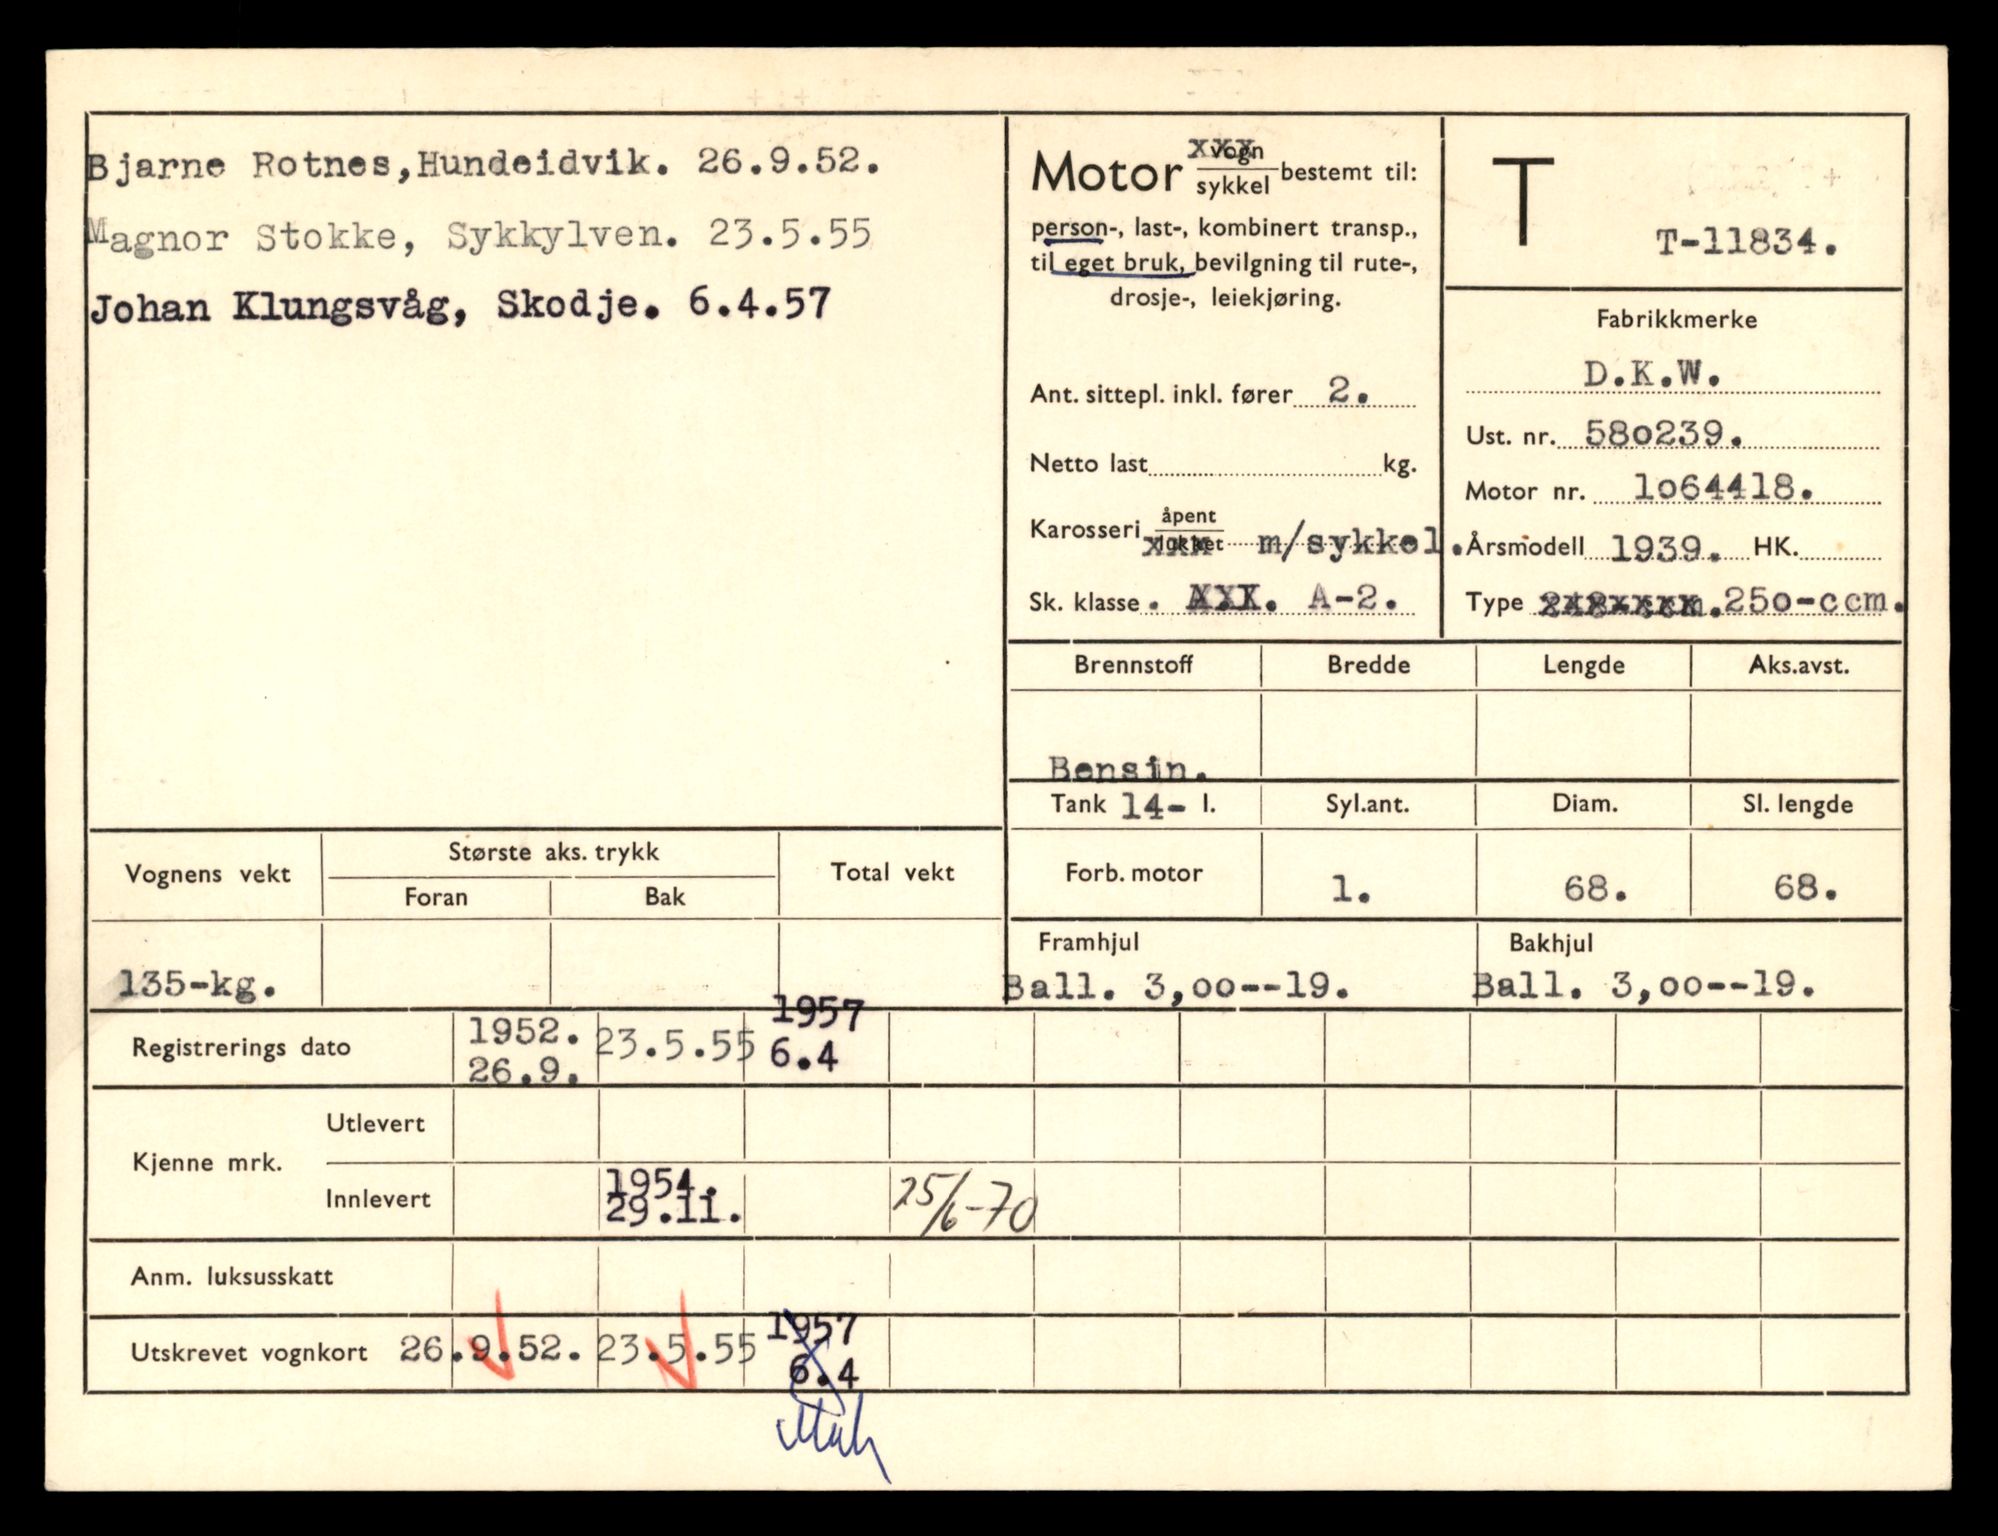 Bjarne Rotnes,Hundeidvik. 26.9.52.
Magnor Stokke, Sykkylven. 23.5.55
Johan Klungsvåg, Skodje. 6.4.57
Motor vogn
sykkel bestemt til:
person-, last-, kombinert transp.,
til eget bruk, bevilgning til rute-,
drosje-, leiekjøring.
Ant. sittepl. inkl. fører 2.
Netto last kg.
Karosseri åpent
lukket m/sykkel.
Sk. klasse . A-2.
T
T-11834.
Fabrikkmerke
D.K.W.
Ust. nr. 580239.
Motor nr. 1o64418.
Årsmodell 1939. HK.
Type 25o-ccm.
Brennstoff Bredde Lengde Aks.avst.
Bensin.
Tank 14- l. Syl.ant. Diam. Sl. lengde
Forb. motor 1. 68. 68.
Framhjul Bakhjul
Ball. 3,oo--19. Ball. 3,oo--19.
Vognens vekt Største aks. trykk Total vekt
Foran Bak
135-kg.
Registrerings dato 1952. 23.5.55 1957
26.9. 6.4
Kjenne mrk. Utlevert
Innlevert 1954. 25/6-70
29.11.
Anm. luksusskatt
Utskrevet vognkort 26.9.52. 23.5.55 1957
6.4